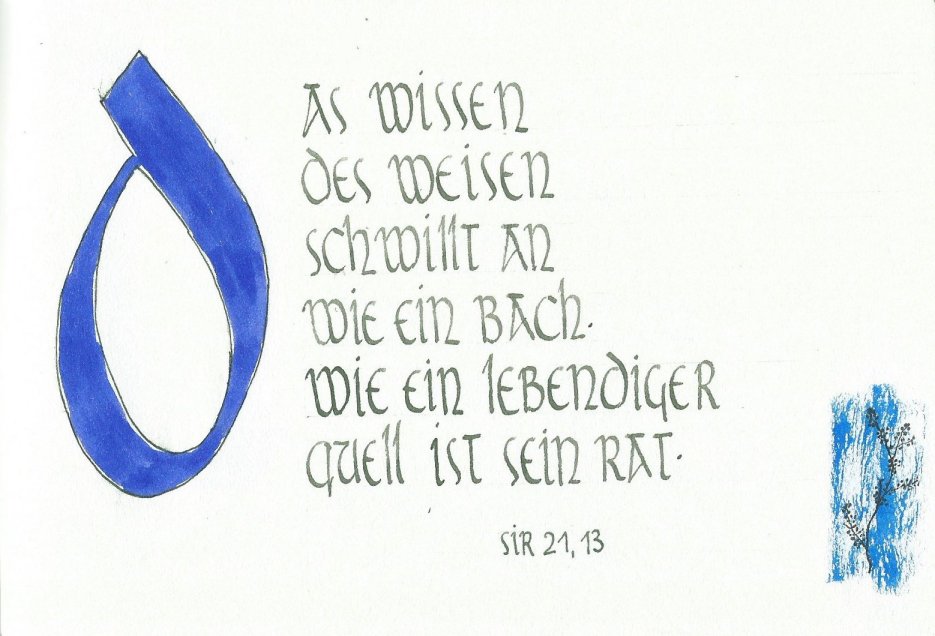 DAS WISSEN
DES WEISEN
SCHWILLT AN
WIE EIN BACH.
WIE EIN LEBENDIGER
QUELL IST SEIN RAT.
SIR 21,13